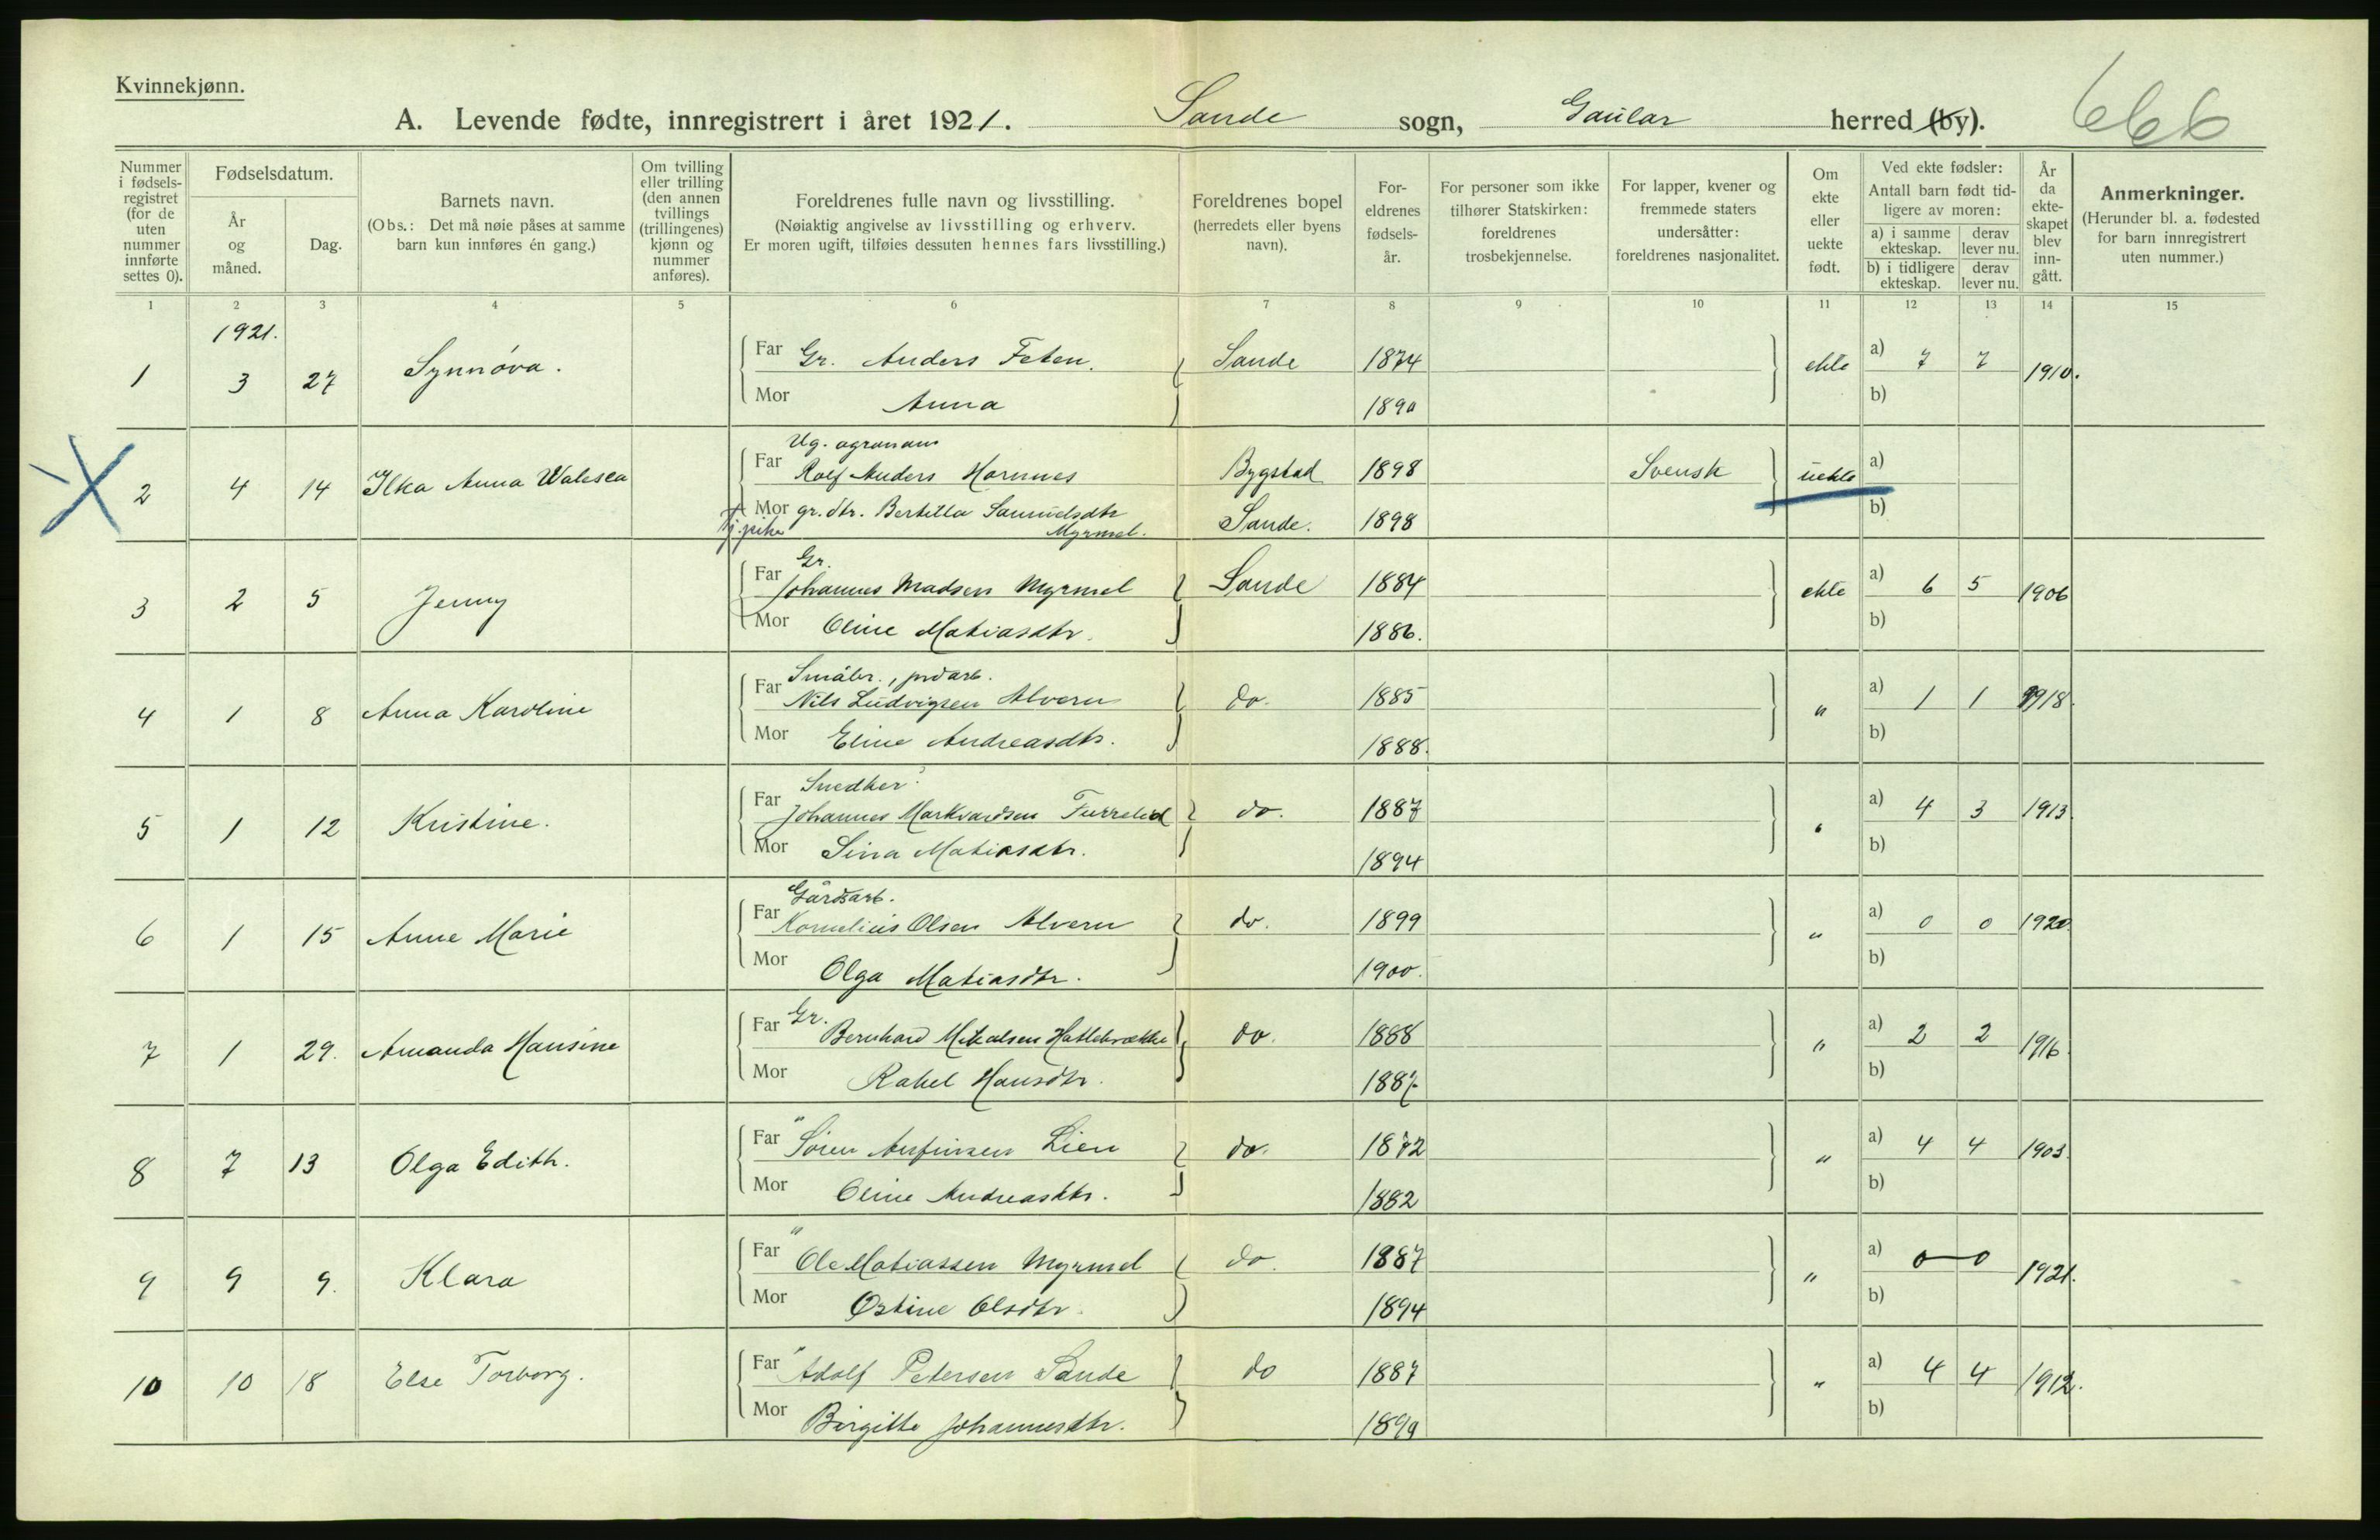 Kvinnekjønn.
A. Levende fødte, innregistrert i året 1921. Sande sogn, Gaular herred (by). 666
Nummer i fødsels-registret (for de uten nummer innførte settes 0).
Fødselsdatum.
År og måned.
Dag.
Barnets navn.
(Obs.: Det må nøie påses at samme barn kun innføres én gang.)
Om tvilling eller trilling (den annen tvillings (trillingenes) kjønn og nummer anføres).
Foreldrenes fulle navn og livsstilling.
(Nøiaktig angivelse av livsstilling og erhverv.
Er moren ugift, tilføies dessuten hennes fars livsstilling.)
Foreldrenes bopel (herredets eller byens navn).
For-eldrenes fødsels-år.
For personer som ikke tilhører Statskirken: foreldrenes trosbekjennelse.
For lapper, kvener og fremmede staters undersåtter: foreldrenes nasjonalitet.
Om ekte eller uekte født.
Ved ekte fødsler: Antall barn født tid-ligere av moren:
a) i samme ekteskap. derav lever nu.
b) i tidligere ekteskap. derav lever nu.
År da ekte-skapet blev inn-gått.
Anmerkninger.
(Herunder bl. a. fødested for barn innregistrert uten nummer.)
1 2 3 4 5 6 7 8 9 10 11 12 13 14 15
1921.
1 3 27 Synnóva. Far Gr. Anders Feten. Sande 1874 ekte a) 7 7 1910.
Mor Anna 1890 b)
Ug. agronom
2 4 14 Ilka Anna Walesca Far Rolf Anders Hornnes Bygstad 1898 Svensk uekte a)
Mor gr. dtr. Bertilla Samuelsdtr Sande. 1898 b)
pike Myrmel.
Gr.
3 2 5 Jenny Far Johannes Madsen Myrmel Sande 1884 ekte a) 6 5 1906
Mor Oline Matiasdtr. 1886. b)
Småbr., jordarb.
4 1 8 Anna Karoline Far Nils Ludvigsen Alvern do. 1885 " a) 1 1 1918.
Mor Eline Andreasdtr. 1888. b)
Snedker.
5 1 12 Kristine. Far Johannes Markvardsen Furrelid do. 1887 " a) 4 3 1913.
Mor Sina Matiasdtr. 1894 b)
Gårdsarb.
6 1 15 Anne Marie Far Kornelius Olsen Alvern do. 1899 " a) 0 0 1920.
Mor Olga Matiasdtr. 1900. b)
7 1 29. Amanda Hansine Far Gr. Bernhard Mikalsen Hatlebrække do. 1888 " a) 2 2 1916
Mor Rakel Hansdtr. 1887 b)
8 7 13 Olga Edith. Far " Sören Anfinsen Lien do. 1872 " a) 4 4 1903.
Mor Oline Andreasdtr. 1882 b)
9 9 9. Klara Far " Ole Matiassen Myrmel do. 1887 " a) 0 0 1921.
Mor Östine Olsdtr. 1894 b)
10 10 18 Else Torborg. Far " Adolf Petersen Sande do 1887 " a) 4 4 1912.
Mor Birgitte Johannesdtr. b)